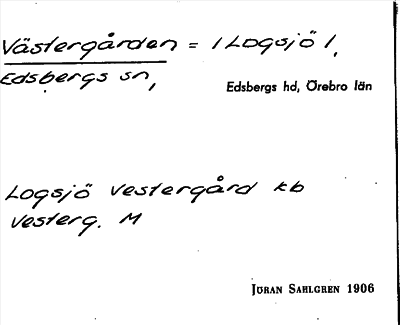 Västergården = / Logsjö /,
Edsbergs sn,
Edsbergs hd, Örebro län
Logsjö Vestergård kb
Vesterg. M
Jöran Sahlgren 1906